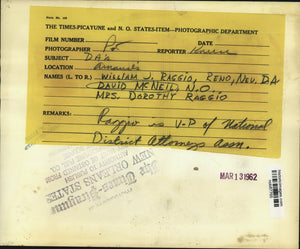 THE TIMES-PICAYUNE and N. O. STATES-ITEM—PHOTOGRAPHIC DEPARTMENT
FILM NUMBER DATE
PHOTOGRAPHER REPORTER
SUBJECT DA's
LOCATION
NAMES (L. TO R.) WILLIAM J. RAGGIO, RENO, NEV. DA
DAVID McNEIL, N.O.
MRS. DOROTHY RAGGIO
REMARKS: Raggio is V-P of National
District Attorneys Assn.
MAR 13 1962
The Times-Picayune
NEW ORLEANS STATES